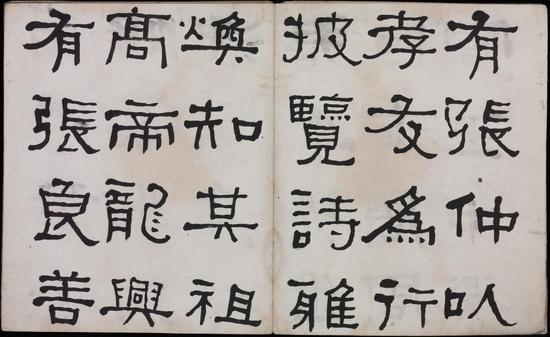 有張仲㠯
孝友爲行
披覽詩雅
煥知其祖
高帝龍興
有張良善